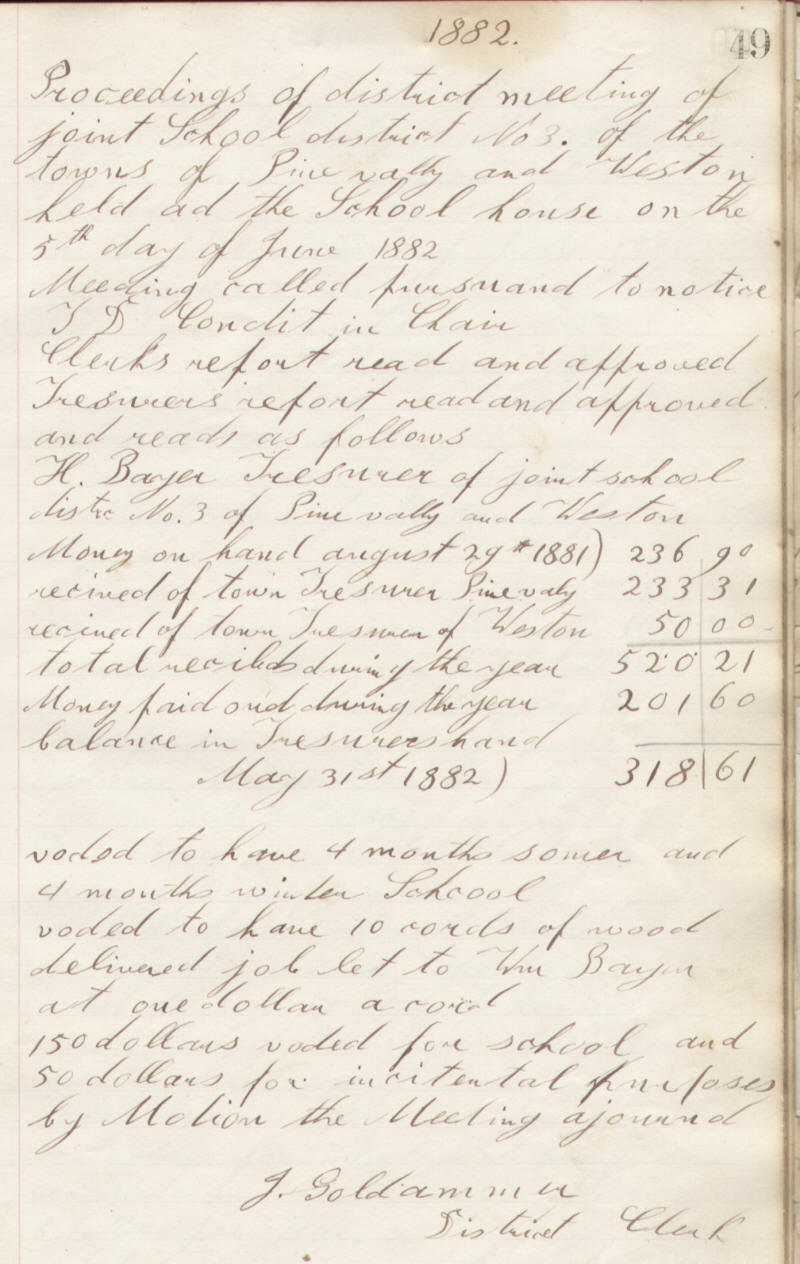 1882.
49
Proceedings of district meeting of
joint School district No 3. of the
towns of Pine vally and Weston
held ad the School house on the
5th day of June 1882
Meeding called pursuand to notice
T D Condit in Chair
Clerks report read and approved
Tresurers report read and approved
and reads as follows
H. Bayer Tresurer of joint school
distrc No. 3 of Pine vally and Weston
Money on hand august 29th 1881) 236 90
recived of town Tresurer Pine valy 233 31
recived of town Tresurer of Weston 50 00
total during the year 520 21
Money paid oud during the year 201 60
balance in Tresurers hand
May 31st 1882) 318 61
voded to have 4 months somer and
4 months winter Schoool
voded to have 10 cords of wood
delivered job let to Wm Bayer
at one dollar a cord
150 dollars voded for school and
50 dollars for incitental purposes
by Motion the Meeting ajournd
J. Goldammer
District Clerk